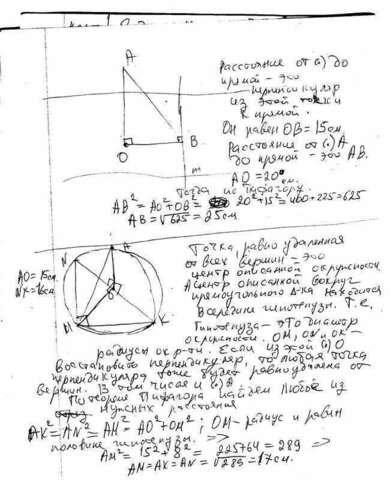 A
O
B
m
Расстояние от (.) до
прямой – это
перпендикуляр
из этой точки
к прямой.
Он равен OB = 15см.
Расстояние от (.) A
до прямой – это AB.
AO = 20см.
Тогда по Пифагору.
AB² = AO² + OB² = 20² + 15² = 400 + 225 = 625
AB = √625 = 25см
A
N
O
M
K
AO = 15см.
NK = 16см.
Точка, равноудаленная
от всех вершин – это
центр описанной окружности.
А центр описанной вокруг
прямоугольного Δ-ка находится
в середине гипотенузы. Т.е.
гипотенуза – это диаметр
окружности. OM, ON и OK –
радиусы окр-ти. Если из этой (.) O
восстановить перпендикуляр, то любая точка
перпендикуляра тоже будет равноудалена от
вершин. В том числе и (.) A
По теореме Пифагора найдем любое из
нужных расстояния
AK² = AN² = AM² = AO² + OM²; OM – радиус и равен
половине гипотенузы. =>
AM² = 15² + 8² = 225 + 64 = 289 =>
AN = AK = AN = √289 = 17см.